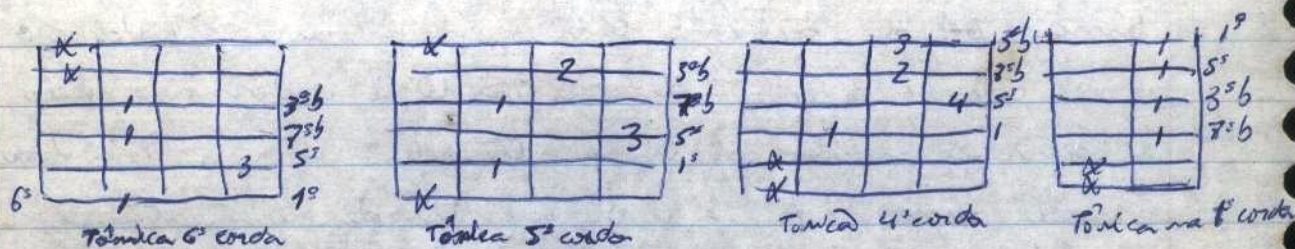 x x 1 1 3 1 3ªb 7ªb 5ª 1ª 6ª
Tônica 6ª corda
x 2 1 3 1 x 3ªb 7ªb 5ª 1ª
Tônica 5ª corda
3 2 4 1 x x 3ªb 7ªb 5ª 1
Tonica 4ª corda
1 1 1 1 x x 1ª 5ª 3ªb 7ªb
Tônica na 1ª corda